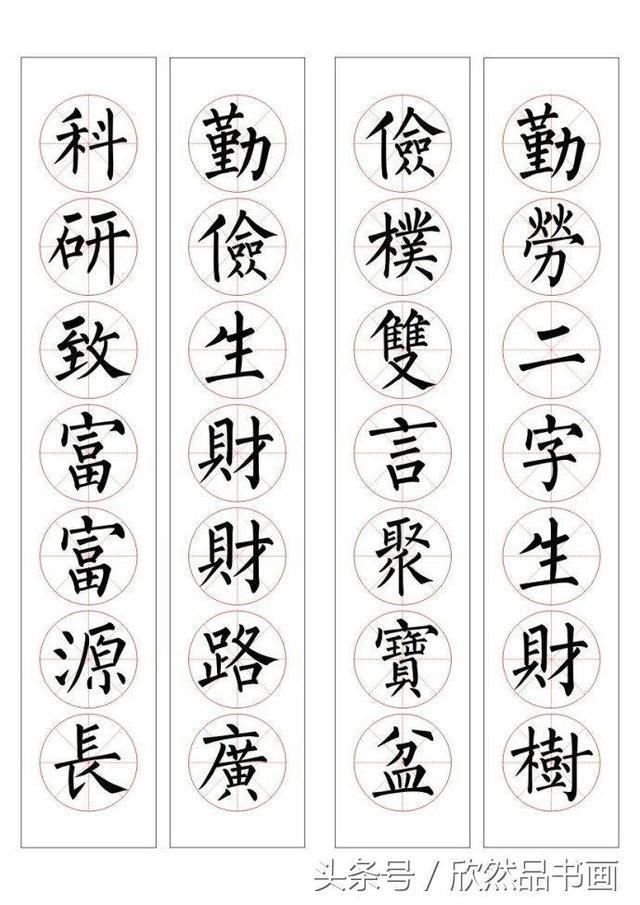 勤勞二字生財樹
儉樸雙言聚寶盆
勤儉生財財路廣
科研致富富源長
头条号 / 欣然品书画